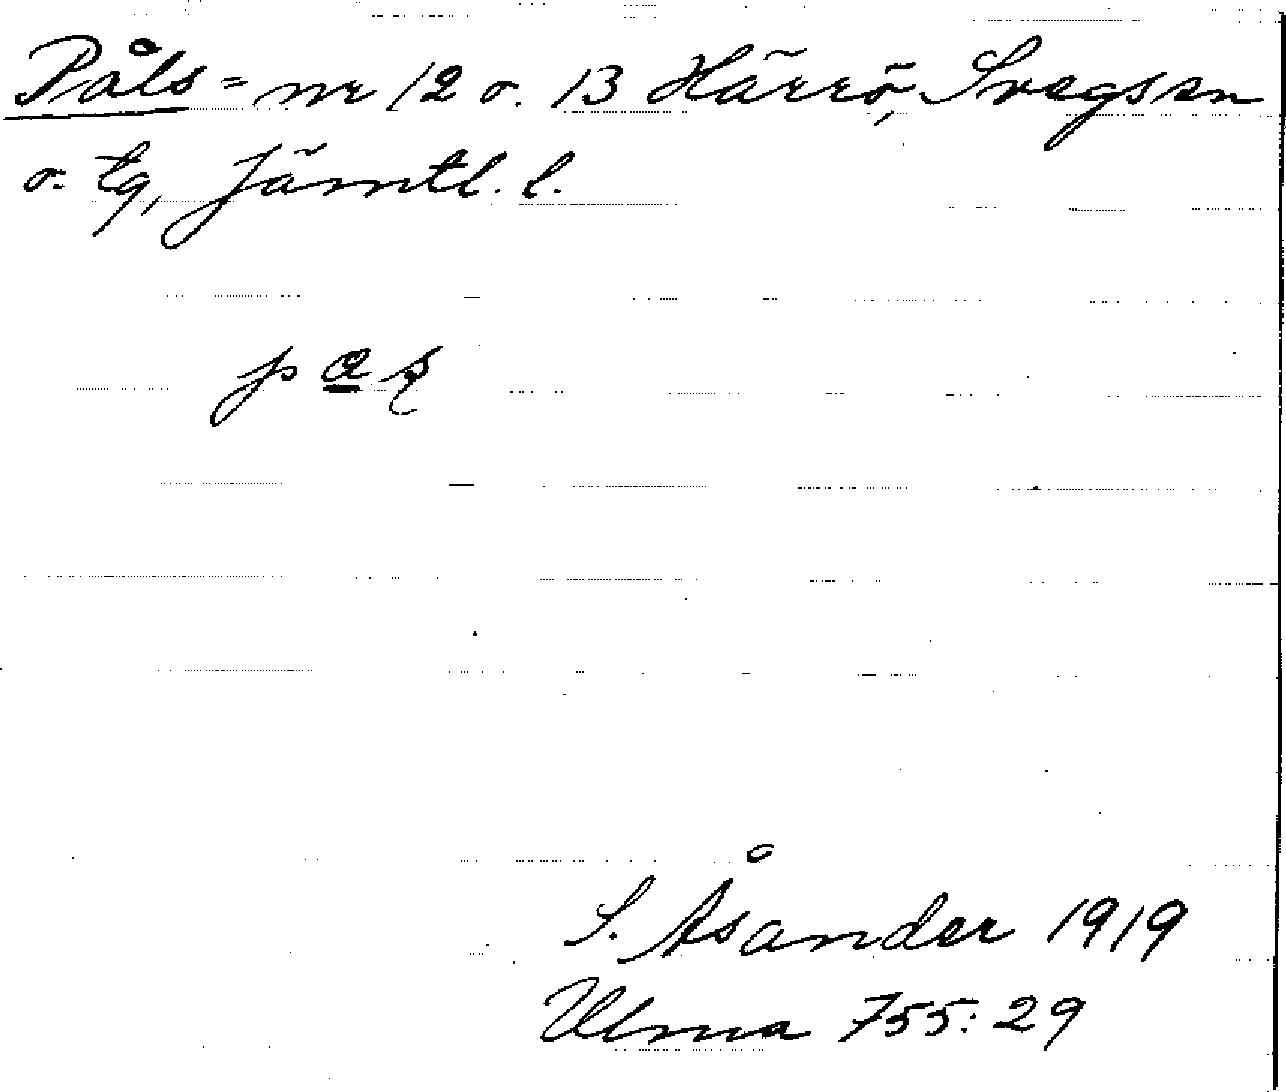 Påls= nr 12 o. 13 Härrö, Svegs sn
o. tg, Jämtl. l.
S. Åsander 1919
Ulma 755:29